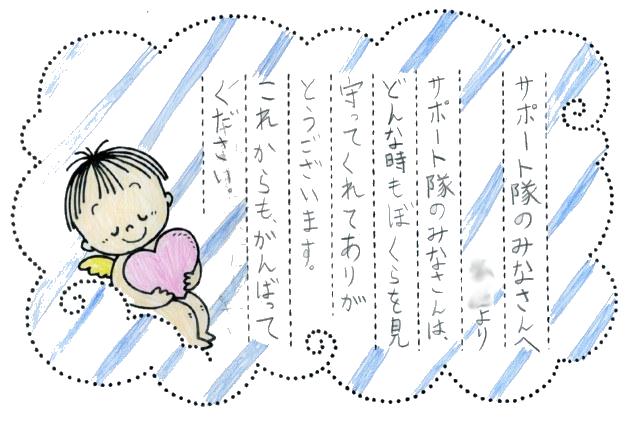 サポート隊のみなさんへ
より
サポート隊のみなさんは、
どんな時もぼくらを見
守ってくれてありが
とうございます。
これからも、がんばって
ください。